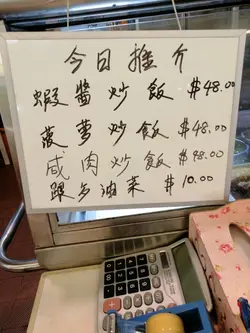 今日推介
蝦醬炒飯 $48.00
菠蘿炒飯 $48.00
咸肉炒飯 $48.00
跟多油菜 $10.00